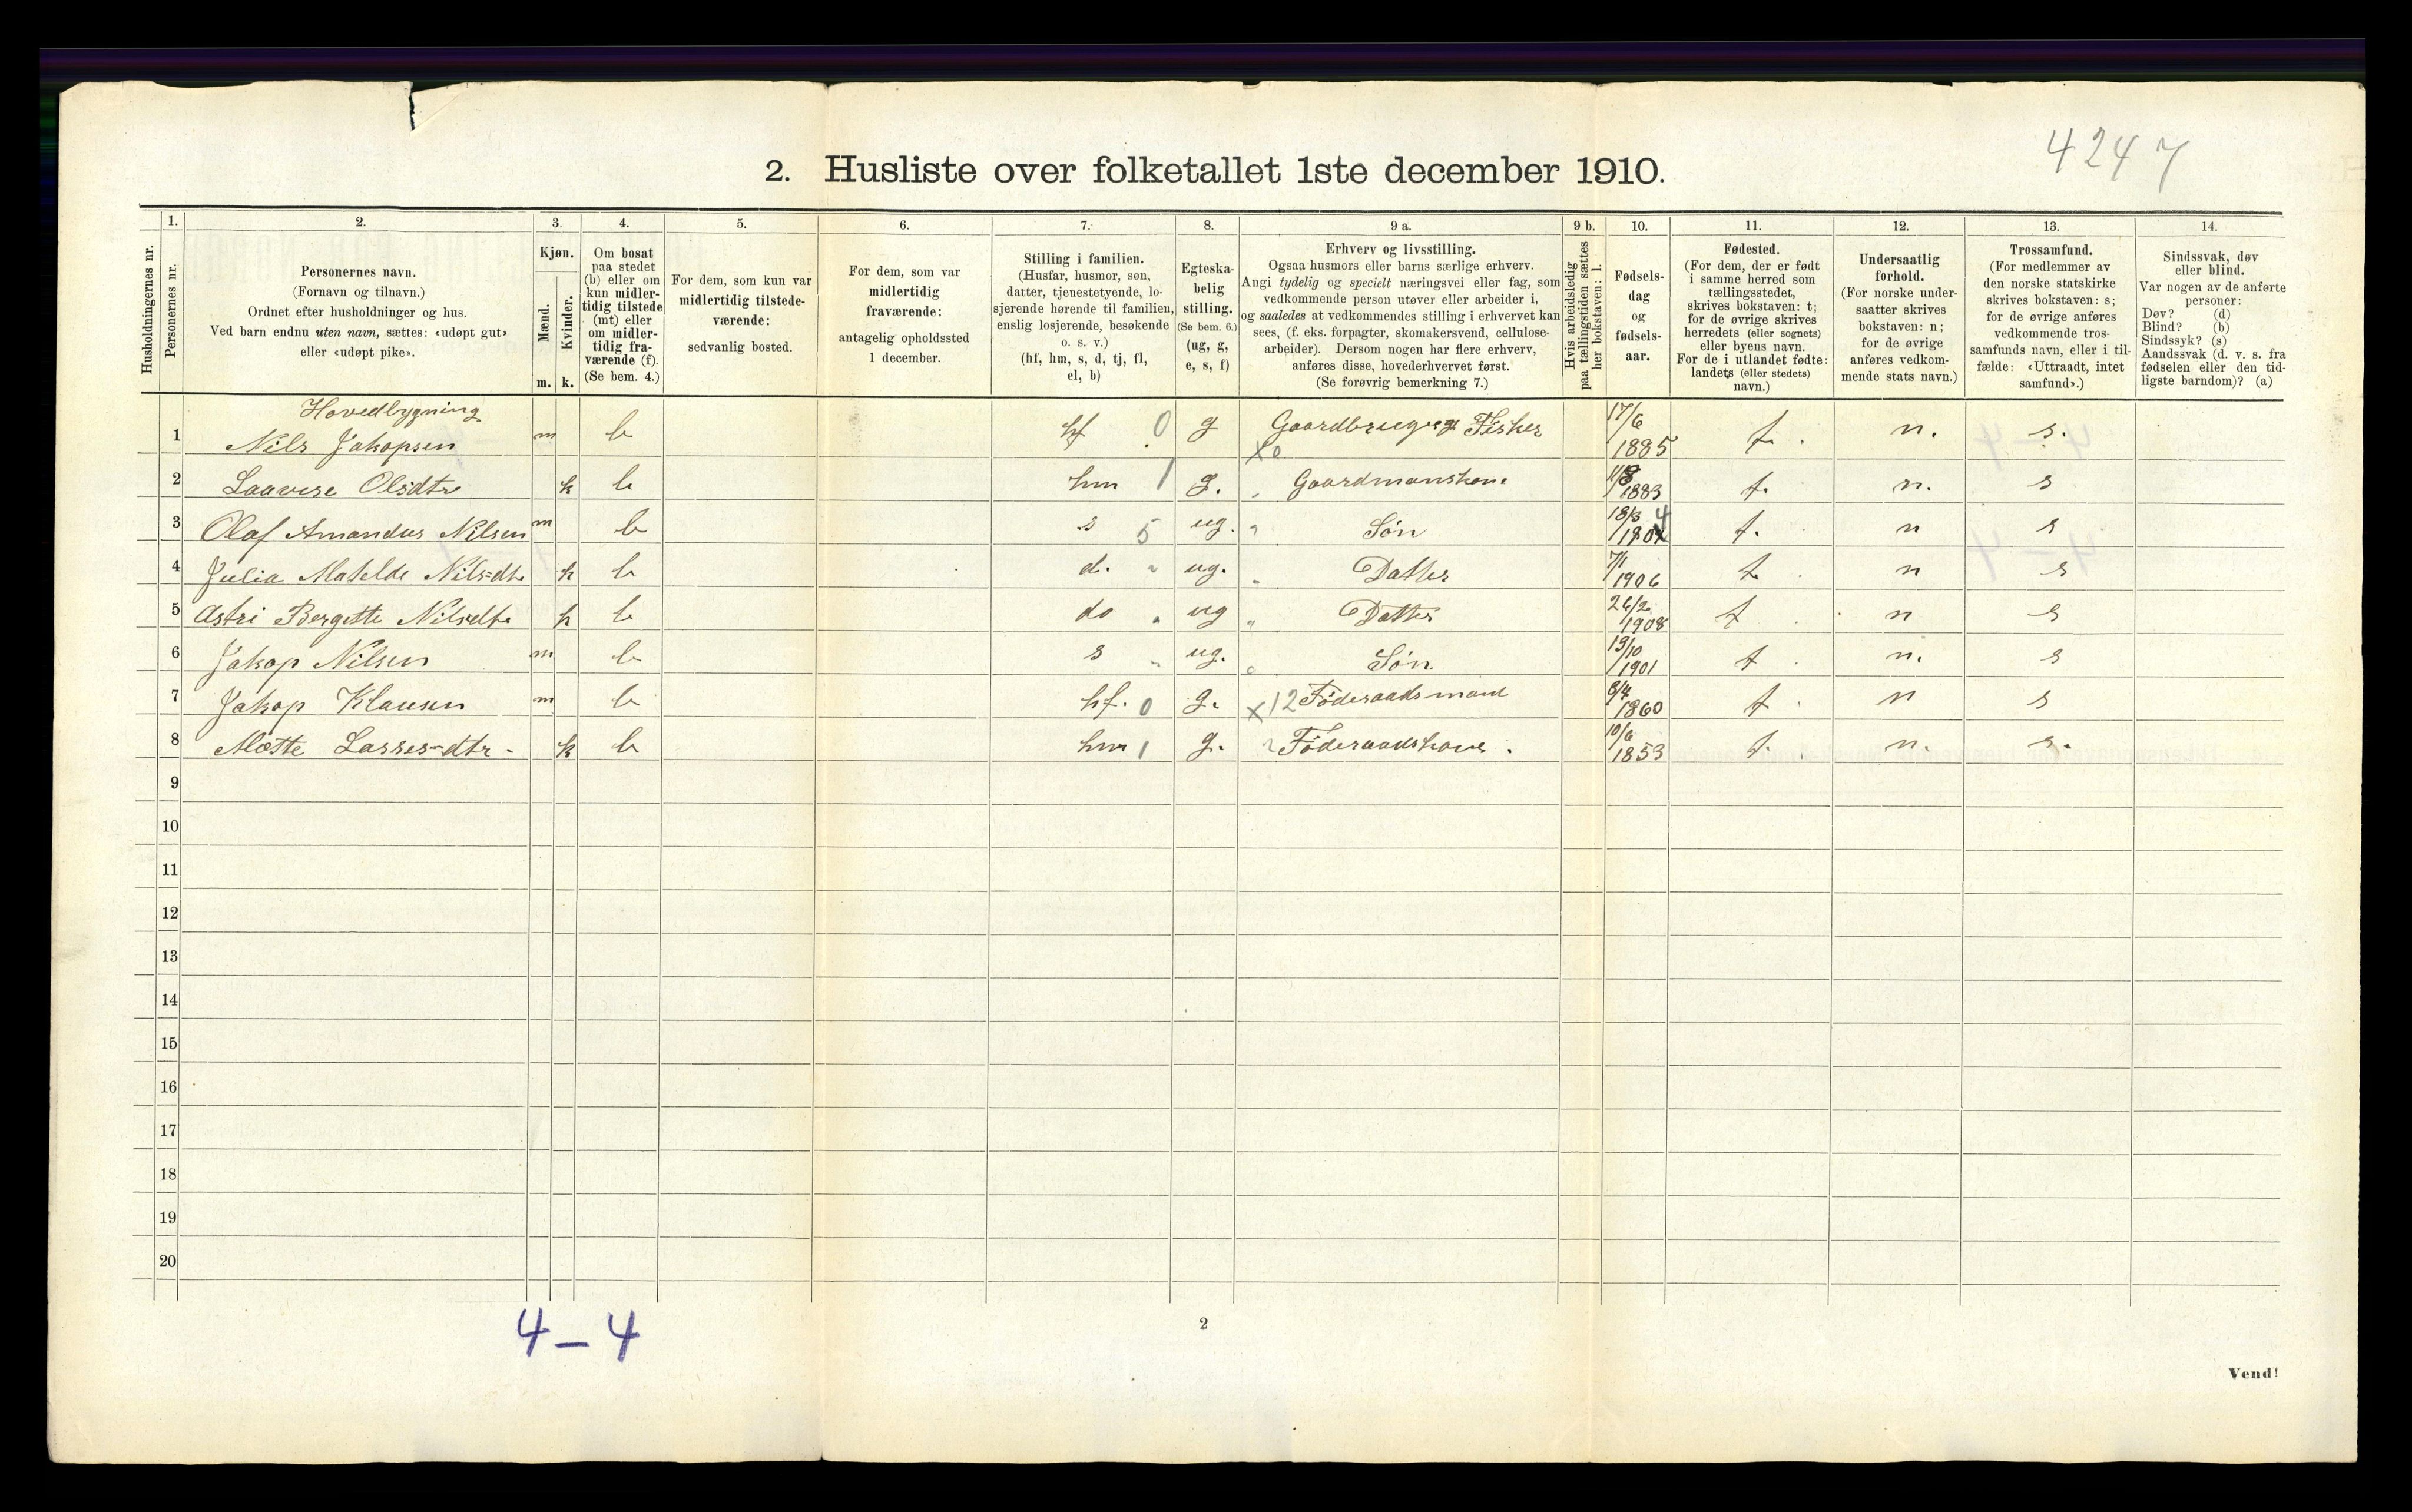 4247
2. Husliste over folketallet 1ste december 1910.
Husholdningernes nr.
1. Personernes nr.
2. Personernes navn.
(Fornavn og tilnavn.)
Ordnet efter husholdninger og hus.
Ved barn endnu uten navn, sættes: «udøpt gut»
eller «udøpt pike».
3. Kjøn.
Mænd. m.
Kvinder. k.
4. Om bosat
paa stedet
(b) eller om
kun midler-
tidig tilstede
(mt) eller
om midler-
tidig fra-
værende (f).
(Se bem. 4.)
5. For dem, som kun var
midlertidig tilstede-
værende:
sedvanlig bosted.
6. For dem, som var
midlertidig
fraværende:
antagelig opholdssted
1 december.
7. Stilling i familien.
(Husfar, husmor, søn,
datter, tjenestetyende, lo-
sjerende hørende til familien,
enslig losjerende, besøkende
o. s. v.)
(hf, hm, s, d, tj, fl,
el, b)
8. Egteska-
belig
stilling.
(Se bem. 6.)
(ug, g,
e, s, f)
9 a. Erhverv og livsstilling.
Ogsaa husmors eller barns særlige erhverv.
Angi tydelig og specielt næringsvei eller fag, som
vedkommende person utøver eller arbeider i,
og saaledes at vedkommendes stilling i erhvervet kan
sees, (f. eks. forpagter, skomakersvend, cellulose-
arbeider). Dersom nogen har flere erhverv,
anføres disse, hovederhvervet først.
(Se forøvrig bemerkning 7.)
9 b. Hvis arbeidsledig
paa tællingstiden sættes
her bokstaven: l.
10. Fødsels-
dag
og
fødsels-
aar.
11. Fødested.
(For dem, der er født
i samme herred som
tællingsstedet,
skrives bokstaven: t;
for de øvrige skrives
herredets (eller sognets)
eller byens navn.
For de i utlandet fødte:
landets (eller stedets)
navn.)
12. Undersaatlig
forhold.
(For norske under-
saatter skrives
bokstaven: n;
for de øvrige
anføres vedkom-
mende stats navn.)
13. Trossamfund.
(For medlemmer av
den norske statskirke
skrives bokstaven: s;
for de øvrige anføres
vedkommende tros-
samfunds navn, eller i til-
fælde: «Uttraadt, intet
samfund».)
14. Sindssvak, døv
eller blind.
Var nogen av de anførte
personer:
Døv? (d)
Blind? (b)
Sindssyk? (s)
Aandssvak (d. v. s. fra
fødselen eller den tid-
ligste barndom)? (a)
Hovedbygning
1 Nils Jakopsen m b hf 0 g Fisker x0 17/6 1885 t. n. s.
2 Olsdtr k b hm 1 g. Gaardmanskone 1883 t. n. s
3 Olaf Amandus Nilsen m b s 5 ug. " Søn 18/3 4 t. n s
4 Julia Matelde Nilsdtr k b d. " ug. " Datter 7/1 1906 t n s
5 Astri Bergitte Nilsdtr k b do " ug " Datter 26/2 1908 t n s
6 Jakop Nilsen m b s " ug. Søn 13/10 1901 t n. s
7 Jakop Klausen m b hf. 0 g. x12 Föderaadsmand 8/4 1860 t n s
8 Mötte Lasses-dtr- k b hm 1 g. " Föderaadskone. 10/6 1853 t. n. s.
9
10
11
12
13
14
15
16
17
18
19
20
4-4
2
Vend!